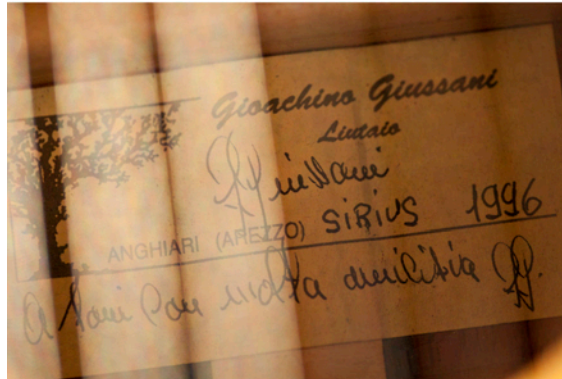 Gioachino Giussani
Liutaio
GGiussani
ANGHIARI (AREZZO) SIRIUS 1996
a Toni con molta amicizia GG.